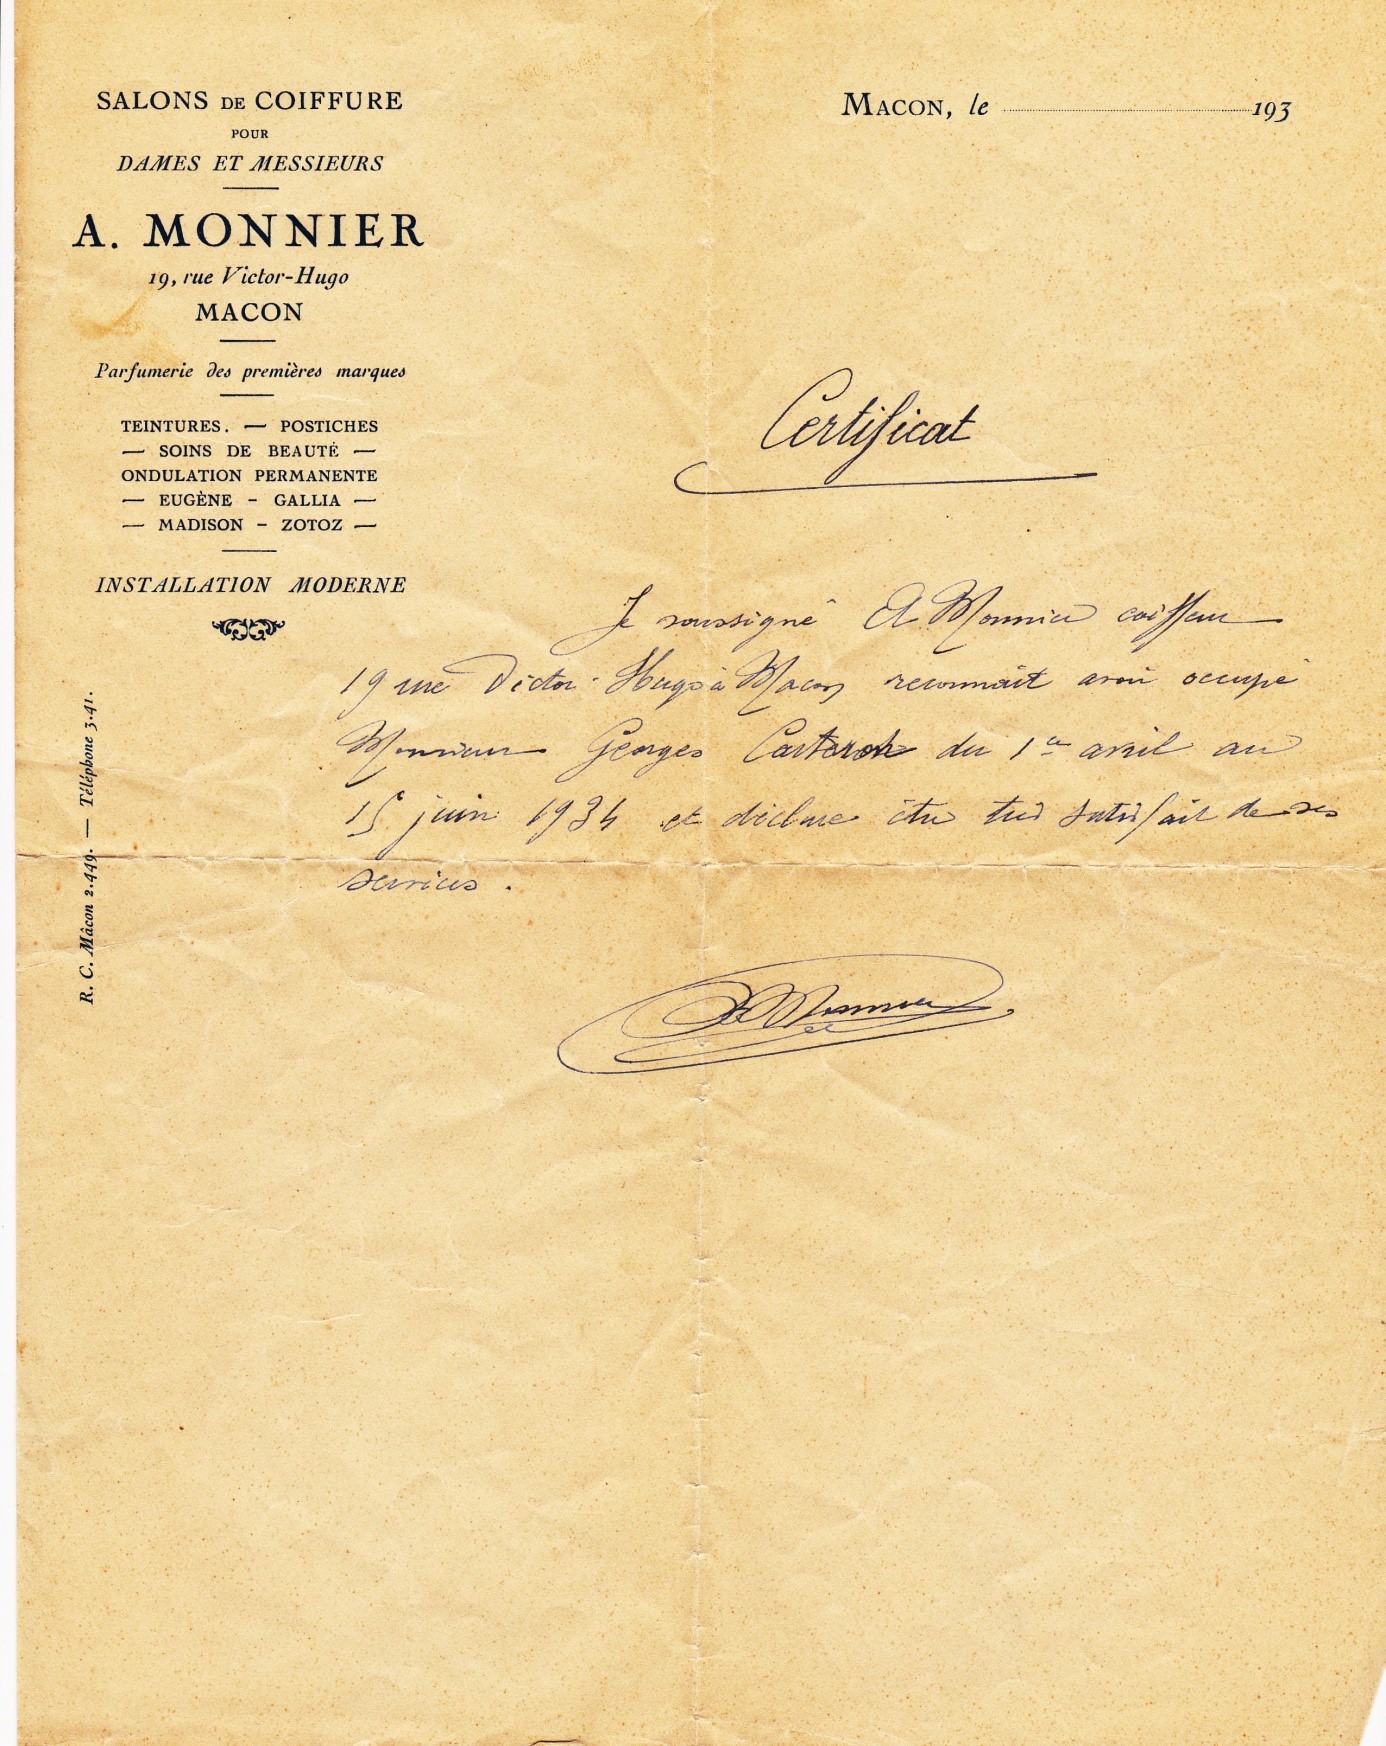 SALONS DE COIFFURE
POUR
DAMES ET MESSIEURS
A. MONNIER
19, rue Victor-Hugo
MACON
Parfumerie des premières marques
TEINTURES. — POSTICHES
— SOINS DE BEAUTÉ —
ONDULATION PERMANENTE
— EUGÈNE - GALLIA —
— MADISON - ZOTOZ —
INSTALLATION MODERNE
R. C. Mâcon 2.449. — Téléphone 3.41.
MACON, le 193
Certificat
Je soussigné A Monnier coiffeur
19 rue Victor-Hugo à Macon reconnait avoir occupé
Monsieur Georges du 1er avril au
15 juin 1934 et déclare être très satisfait de ses
services.
A Monnier